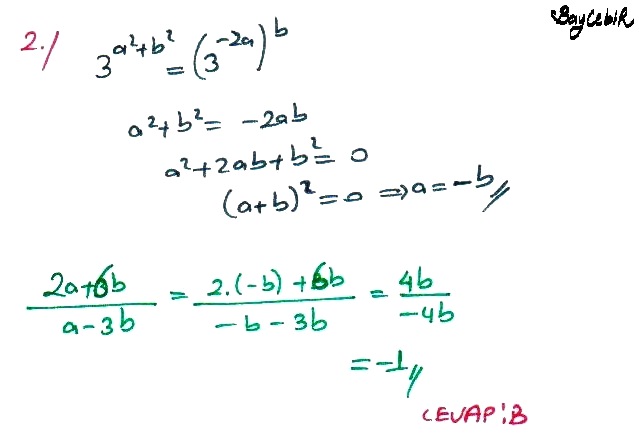 BayCebiR
2./ 3^(a²+b²) = (3^(-2a))^b
a²+b² = -2ab
a²+2ab+b² = 0
(a+b)² = 0 ⇒ a = -b //
(2a+6b)/(a-3b) = (2.(-b)+6b)/(-b-3b) = 4b/(-4b)
= -1 //
CEVAP:B